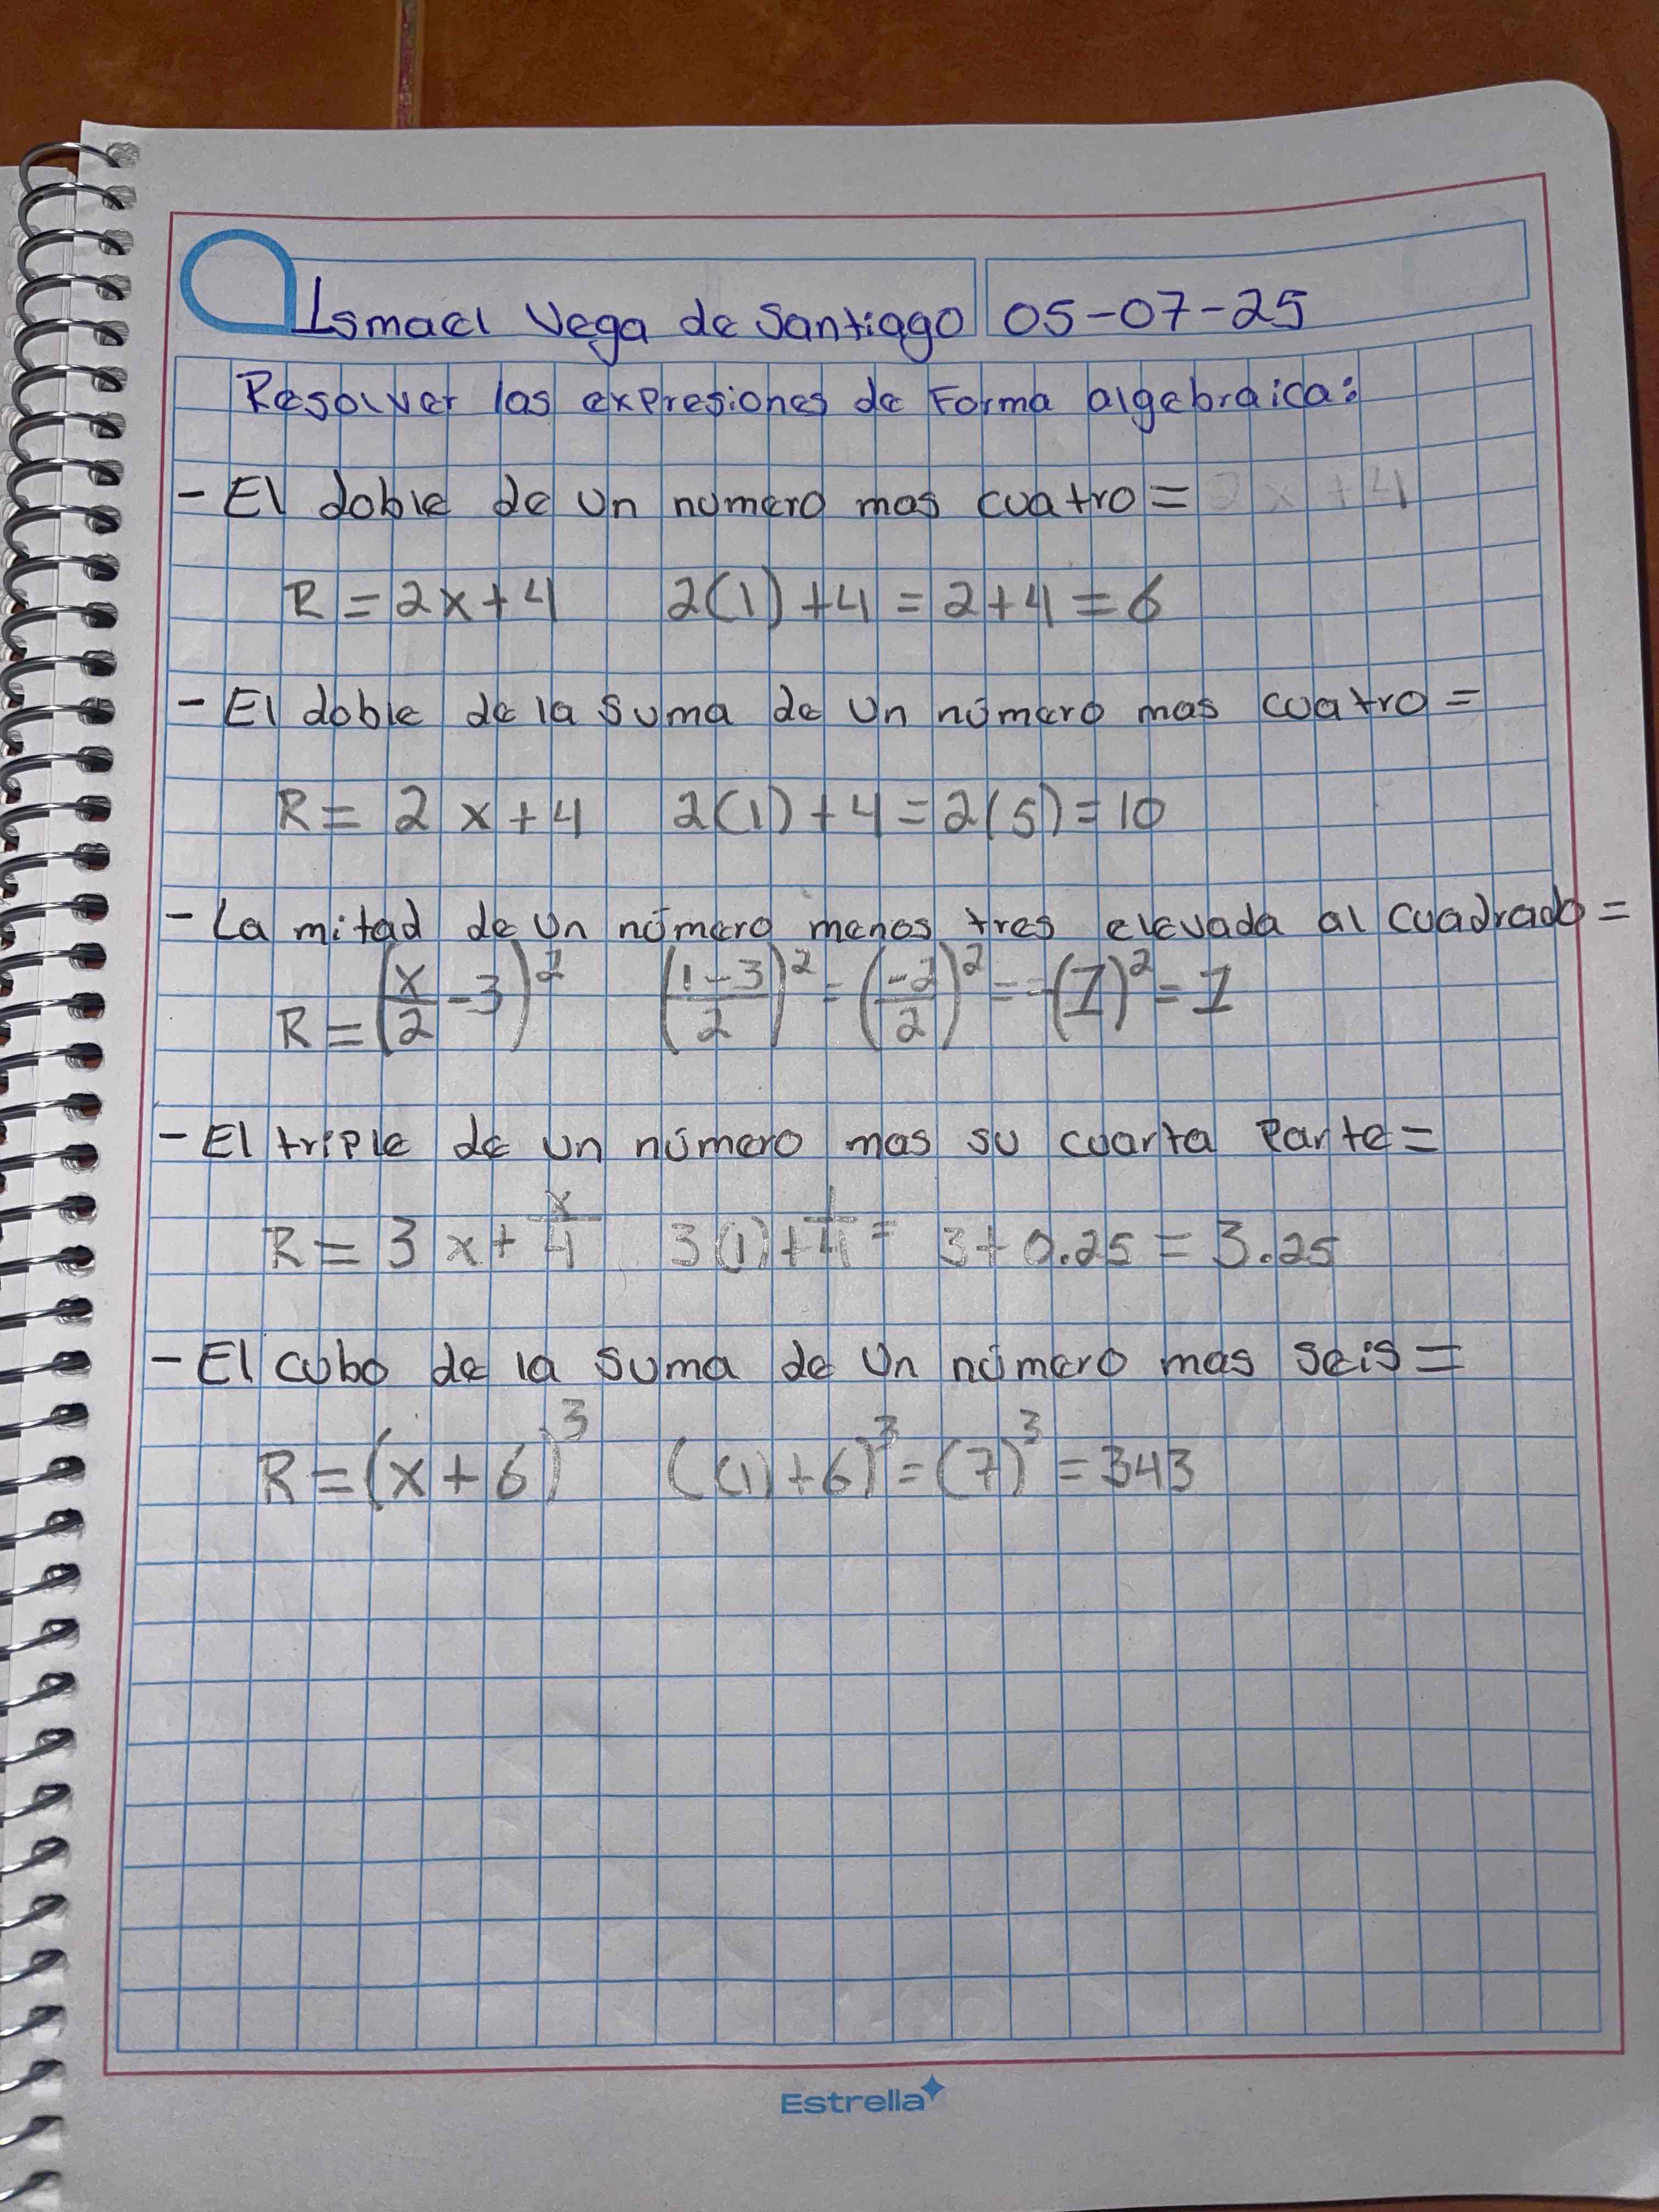 Ismael Vega de Santiago 05-07-25
Resolver las expresiones de Forma algebraica:
- El doble de un número mas cuatro = 2x+4
R = 2x+4 2(1)+4 = 2+4 = 6
- El doble de la suma de un número mas cuatro =
R = 2x+4 2(1)+4 = 2(5) = 10
- La mitad de un número menos tres elevada al cuadrado =
R = (x/2 - 3)² (1-3/2)² = (-2/2)² = -(1)² = 1
- El triple de un número mas su cuarta Parte =
R = 3x + x/4 3(1) + 1/4 = 3+0.25 = 3.25
- El cubo de la suma de un número mas seis =
R = (x+6)³ ((1)+6)³ = (7)³ = 343
Estrella